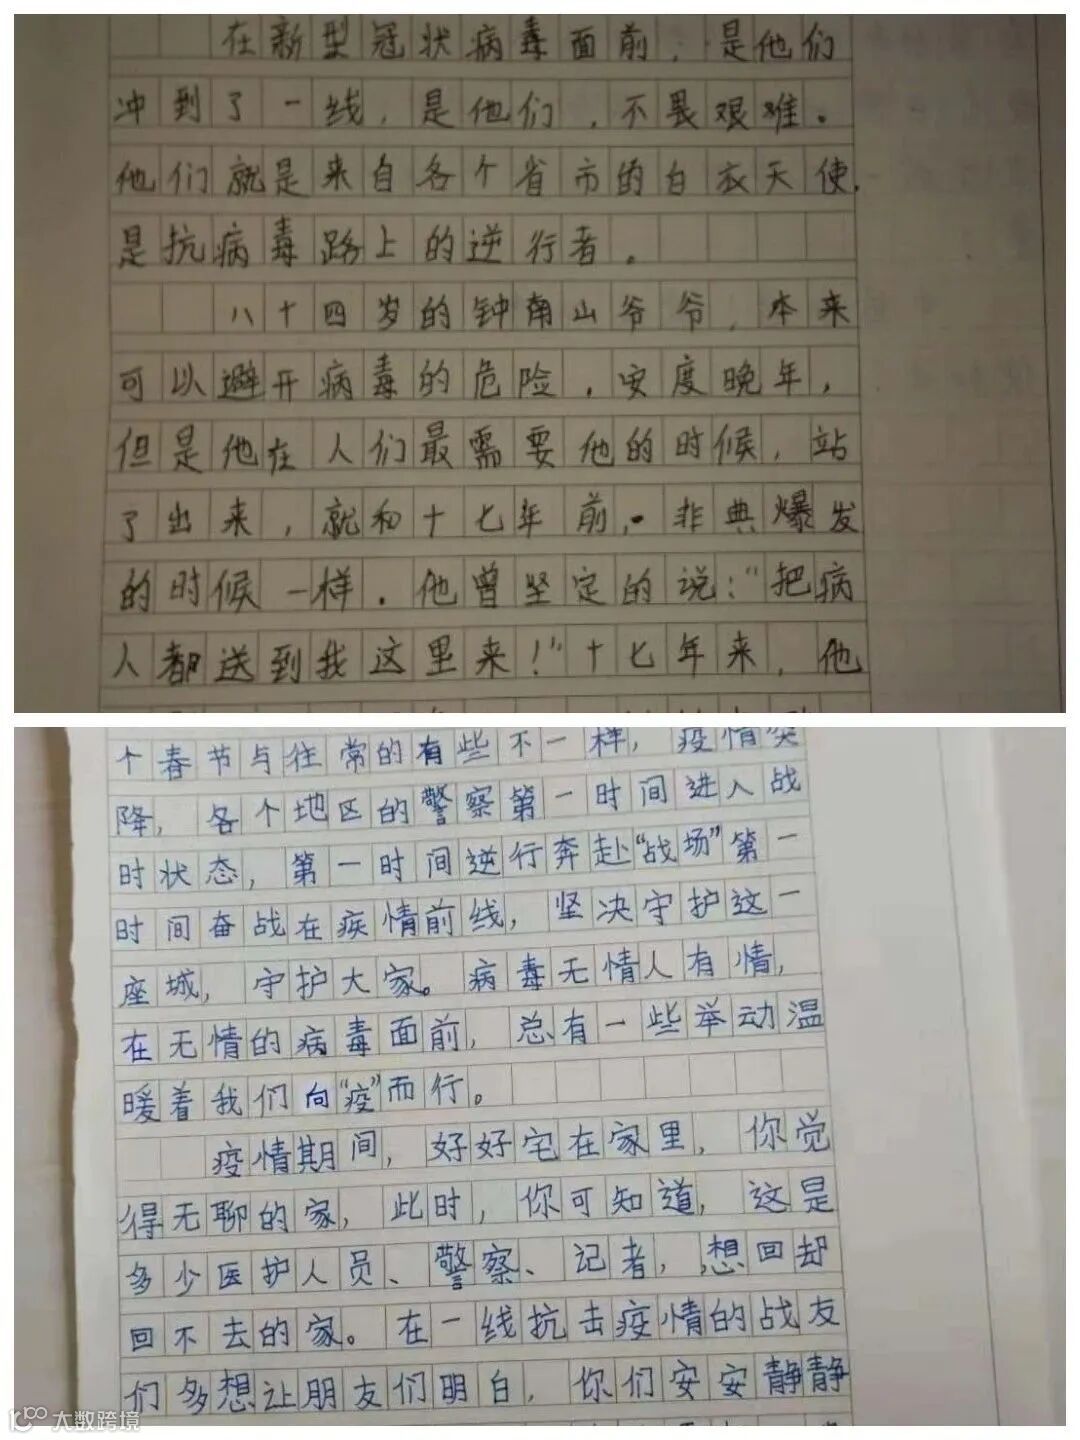 在新型冠状病毒面前，是他们
冲到了一线，是他们，不畏艰难。
他们就是来自各个省市的白衣天使，
是抗病毒路上的逆行者。
八十四岁的钟南山爷爷，本来
可以避开病毒的危险，安度晚年，
但是他在人们最需要他的时候，站
了出来，就和十七年前，非典爆发
的时候一样。他曾坚定的说：“把病
人都送到我这里来！”十七年来，他
个春节与往常的有些不一样，疫情突
降，各个地区的警察第一时间进入战
时状态，第一时间逆行奔赴“战场”第一
时间奋战在疾情前线，坚决守护这一
座城，守护大家。病毒无情人有情，
在无情的病毒面前，总有一些举动温
暖着我们向“疫”而行。
疫情期间，好好宅在家里，你觉
得无聊的家，此时，你可知道，这是
多少医护人员、警察、记者，想回却
回不去的家。在一线抗击疫情的战友
们多想让朋友们明白，你们安安静静
大数跨境